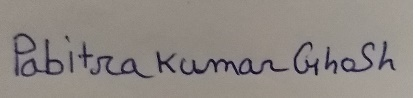 Pabitra Kumar Ghosh